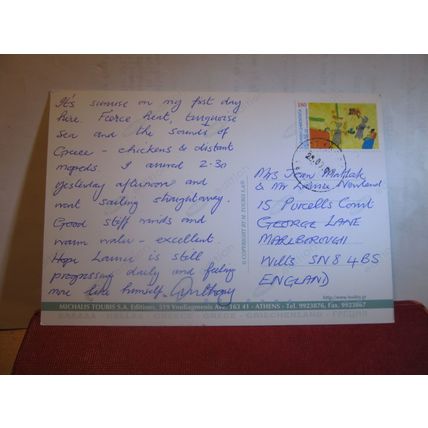 It's sunrise on my first day
here. Fierce heat, turquoise
sea and the sounds of
Greece - chickens & distant
mopeds. I arrived 2.30
yesterday afternoon and
went sailing straightaway.
Good stiff winds and
warm water - excellent.
Hope Lance is still
progressing daily and feeling
more like himself. Anthony
© COPYRIGHT BY M. TOUBIS S.A.
Mrs Jean
& Mr Lance Newland
15 Purcells Court
GEORGE LANE
MARLBOROUGH
Wilts SN8 4BS
ENGLAND
http://www.toubis.gr
MICHALIS TOUBIS S.A. Editions, 519 Vouliagmenis Ave. 163 41 - ATHENS - Tel. 9923876, Fax. 9923867
HELLAS - GREECE - GRECE - GRIECHENLAND - ГРЕЦИЯ